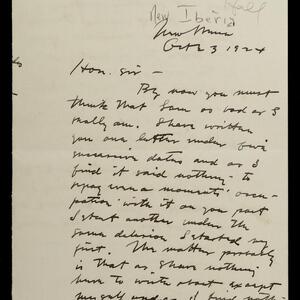 New Iberia Hall
New Iberia
Oct 3 1924
Hon. Sir –
By now you must
think that I am as bad as I
really am. I have written
you one letter under five
successive dates and as I
find it said nothing to
repay even a moment's occu-
pation with it on your part
I start another under the
same delusion I started my
first. The matter probably
is that as I have nothing
have to write about except
myself and as I find